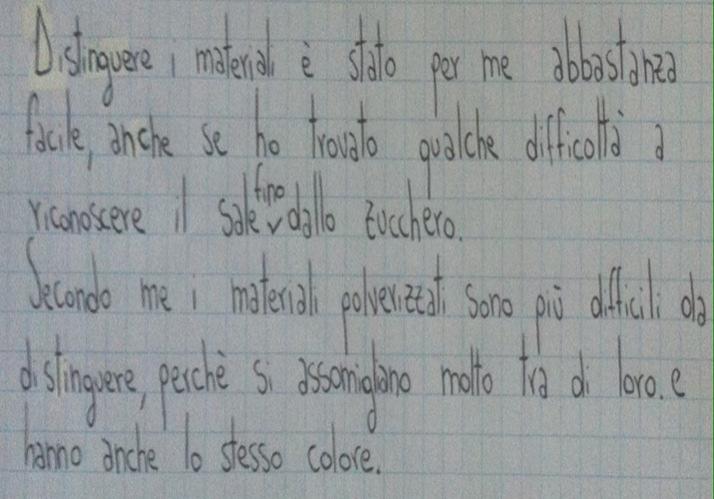 Distinguere i materiali è stato per me abbastanza
facile, anche se ho trovato qualche difficoltà a
riconoscere il sale fino dallo zucchero.
Secondo me i materiali polverizzati sono più difficili da
distinguere, perchè si assomigliano molto tra di loro. e
hanno anche lo stesso colore.